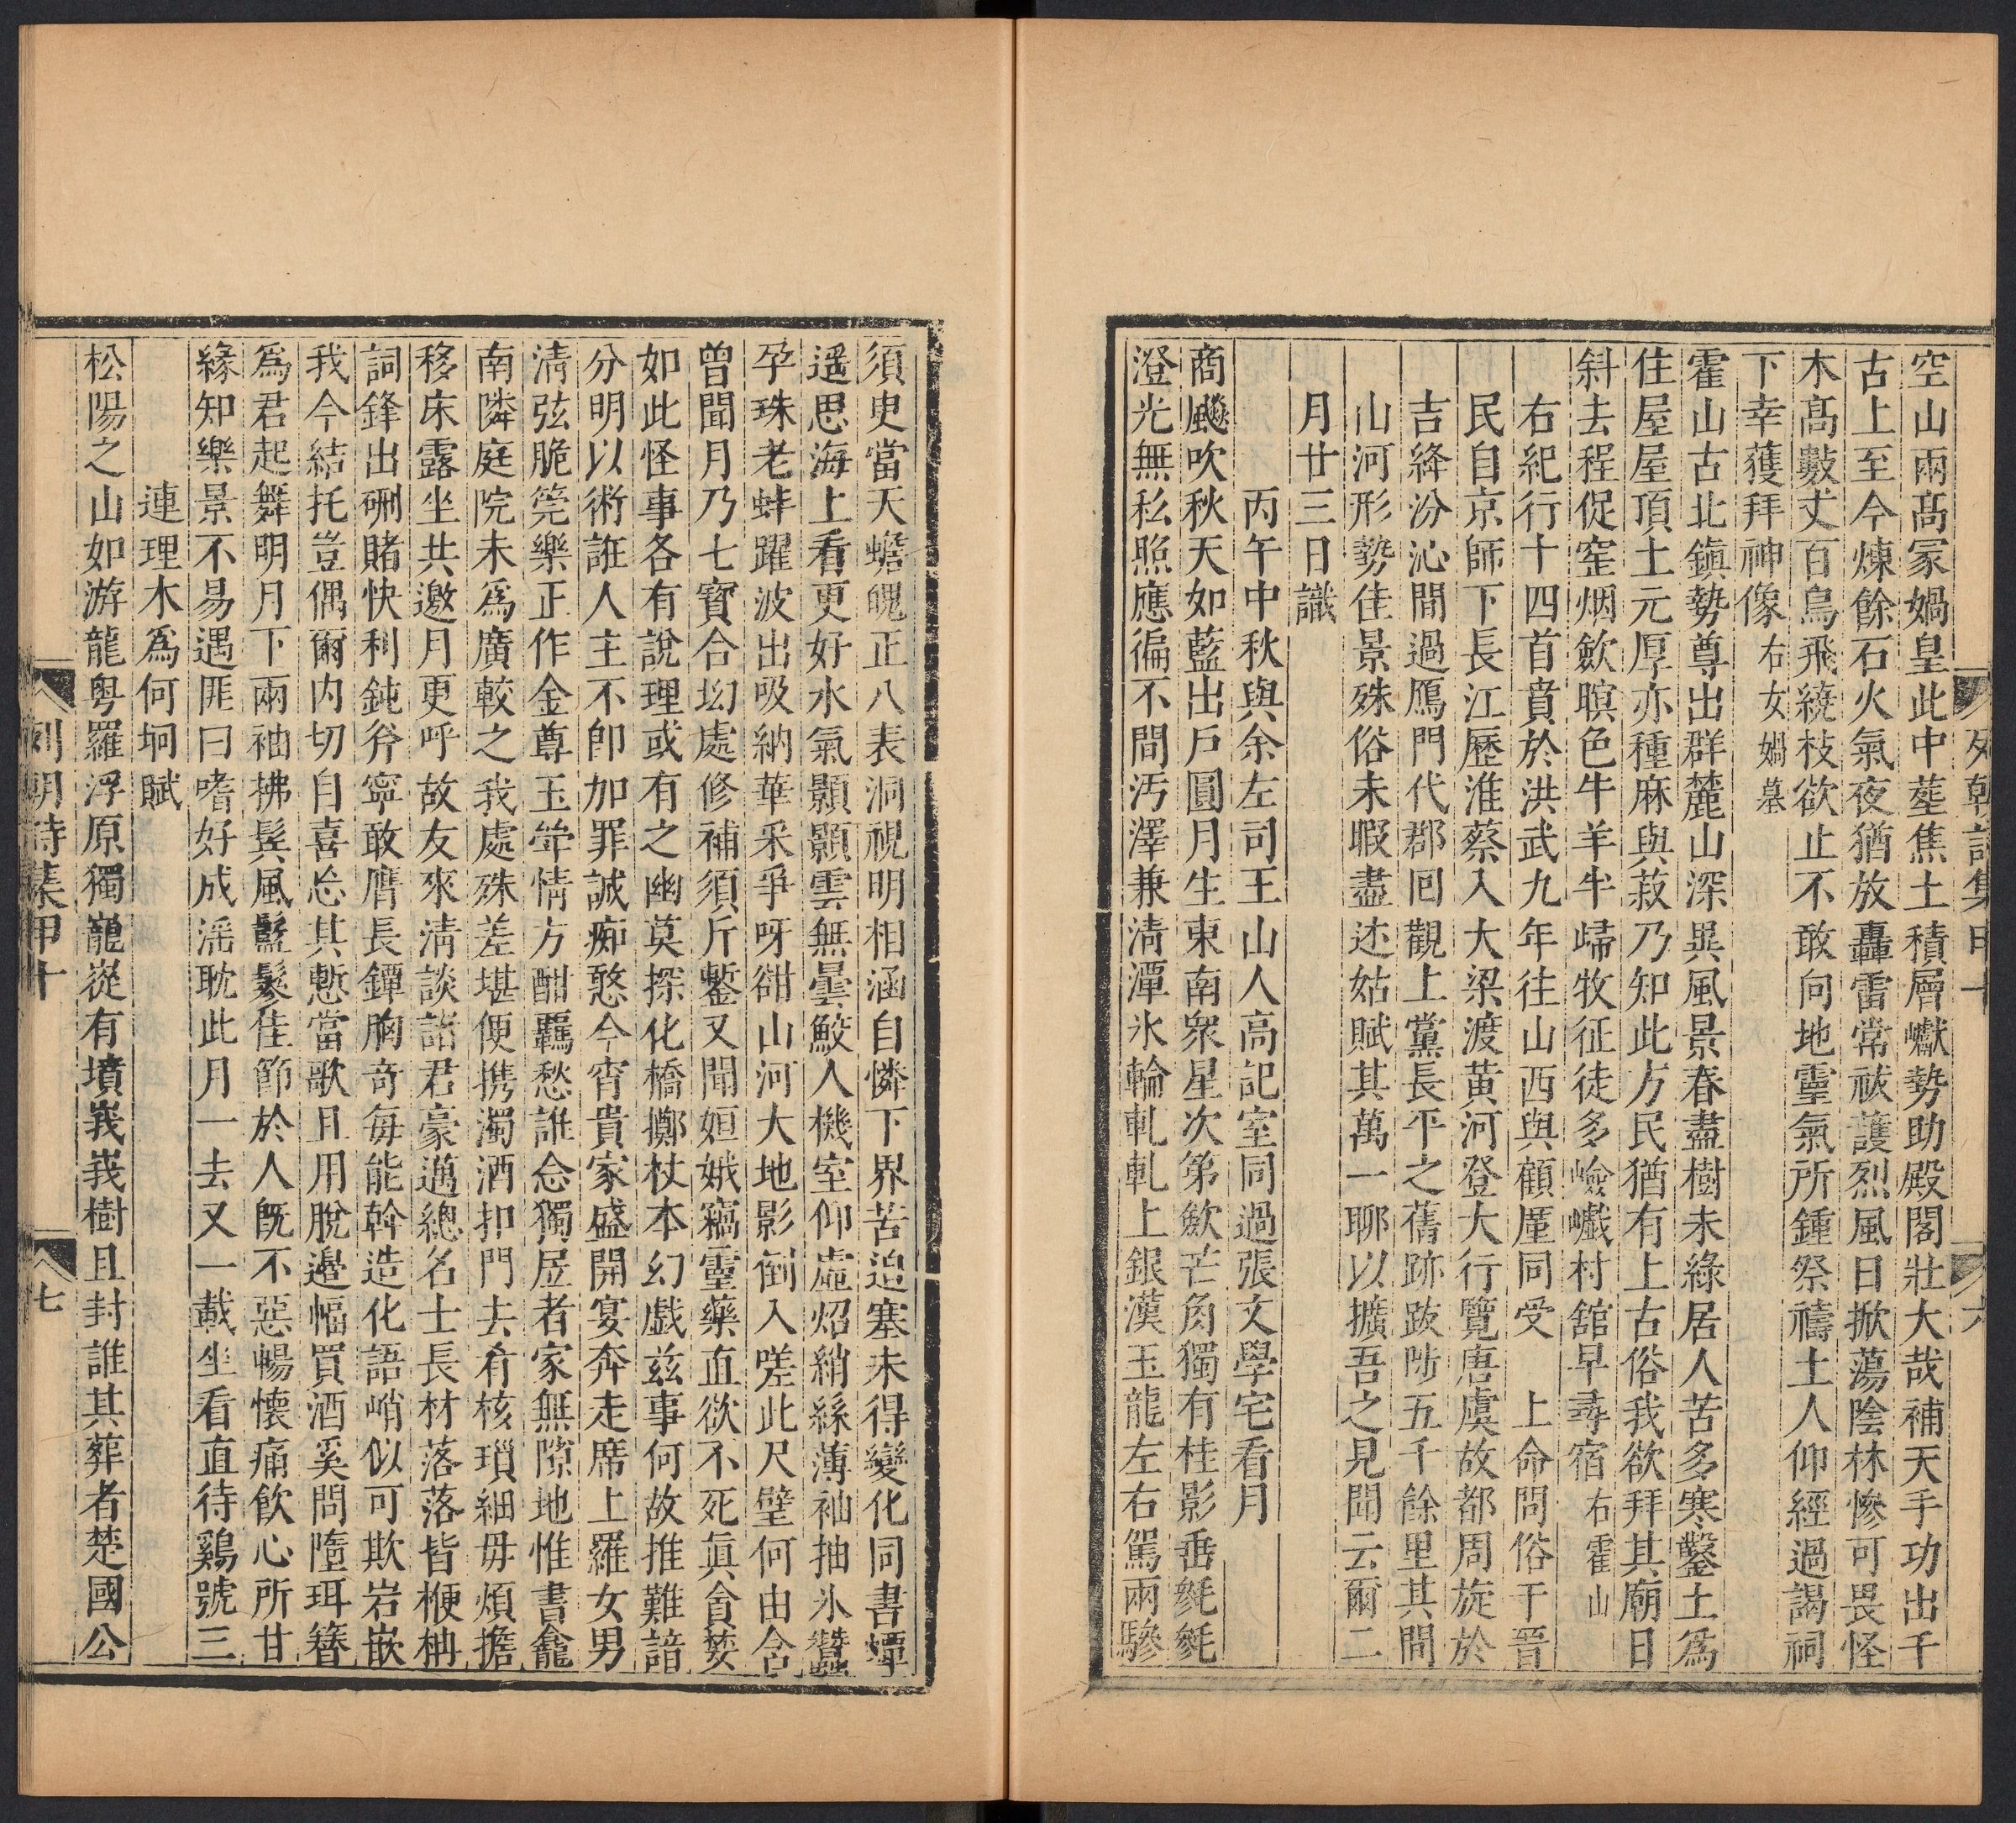 列朝詩集甲十
六
空山兩髙冡媧皇此中塟焦土積層巘勢助殿閣壯大哉補天手功出千
古上至今煉餘石火氣夜猶放轟雷常袚護烈風日掀蕩陰林慘可畏怪
木髙數丈百鳥飛繞枝欲止不敢向地靈氣所鍾祭禱土人仰經過謁祠
下幸獲拜神像右女媧墓
霍山古北鎮勢尊出群麓山深異風景春盡樹未綠居人苦多寒鑿土爲
住屋屋頂土元厚亦種麻與菽乃知此方民猶有上古俗我欲拜其廟日
斜去程促窑烟歛暝色牛羊半歸牧征徒多嶮巇村舘早尋宿右霍山
右紀行十四首賁於洪武九年往山西與顧厘同受 上命問俗于晋
民自京師下長江歷淮蔡入大梁渡黃河登大行覽唐虞故都周旋於
吉絳汾沁間過鴈門代郡囘觀上黨長平之舊跡跋陟五千餘里其間
山河形勢佳景殊俗未暇盡述姑賦其萬一聊以擴吾之見聞云爾二
月廿三日識
丙午中秋與余左司王山人高記室同過張文學宅看月
商飈吹秋天如藍出戶圓月生東南衆星次第歛芒角獨有桂影垂毿毿
澄光無私照應徧不間汚澤兼淸潭氷輪軋軋上銀漢玉龍左右駕兩驂
須臾當天蟾魄正八表洞視明相涵自憐下界苦迫塞未得變化同書蟫
遥思海上看更好水氣顥顥雲無曇鮫人機室仰虛炤綃絲薄袖抽氷蠶
孕珠老蚌躍波出吸納華采爭呀谽山河大地影倒入嗟此尺璧何由含
曾聞月乃七寶合㘭處修補須斤鏨又聞姮娥竊靈藥直欲不死眞貪婪
如此怪事各有說理或有之幽莫探化橋擲杖本幻戲兹事何故推難諳
分明以術誑人主不卽加罪誠痴憨今宵貴家盛開宴奔走席上羅女男
淸弦脆筦樂正作金尊玉斝情方酣羈愁誰念獨居者家無隙地惟書龕
南隣庭院未爲廣較之我處殊差堪便携濁酒扣門去肴核瑣細毋煩擔
移床露坐共邀月更呼故友來淸談詣君豪邁總名士長材落落皆楩柟
詞鋒出硎賭快利鈍斧寧敢膺長鐔胸奇每能斡造化語峭似可欺岩嵌
我今結托豈偶爾內切自喜忘其慙當歌且用脫邊幅買酒奚問隨珥簪
爲君起舞明月下兩袖拂髠風鬖髿佳節於人旣不惡暢懷痛飲心所甘
緣知樂景不易遇匪曰嗜好成淫耽此月一去又一載坐看直待鷄號三
連理木爲何坰賦
松陽之山如游龍粤羅浮原獨巃嵸有墳峩峩樹且封誰其葬者楚國公
列朝詩集甲十
七